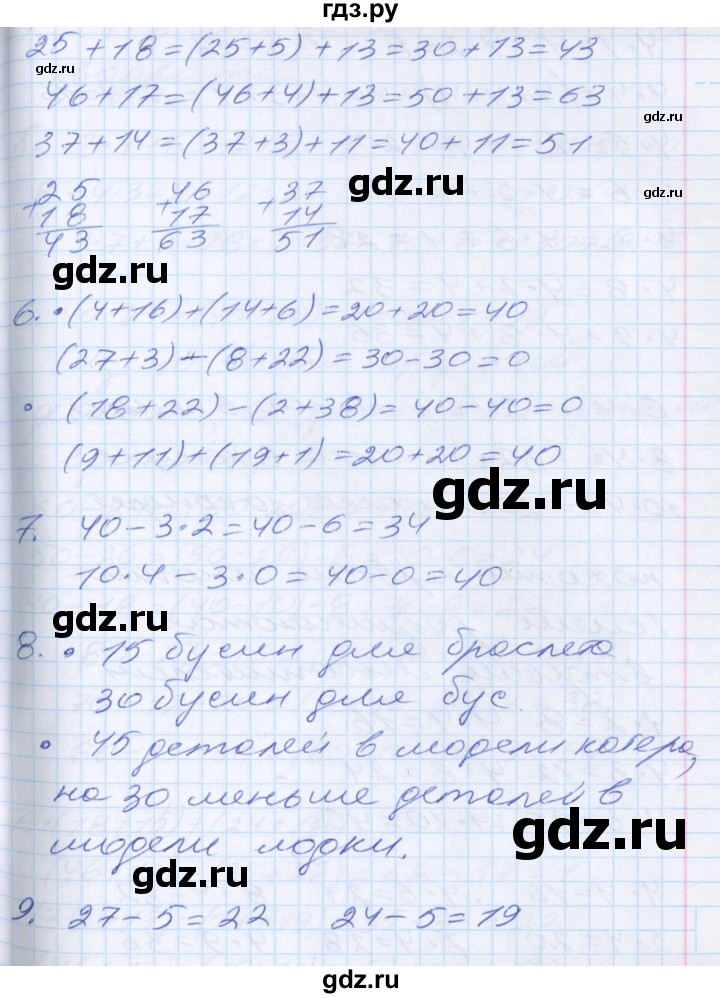 гдз.ру
25 + 18 = (25+5) + 13 = 30 + 13 = 43
gdz.ru
46 + 17 = (46+4) + 13 = 50 + 13 = 63
gdz.ru
37 + 14 = (37+3) + 11 = 40 + 11 = 51
gdz.ru
gdz.ru
25 46 37
+ 18 + 17 + 14
43 63 51
gdz.ru
6. • (4+16) + (14+6) = 20 + 20 = 40
(27+3) - (8+22) = 30 - 30 = 0
• (18+22) - (2+38) = 40 - 40 = 0
(9+11) + (19+1) = 20 + 20 = 40
gdz.ru
7. 40 - 3 • 2 = 40 - 6 = 34
10 • 4 - 3 • 0 = 40 - 0 = 40
gdz.ru
8. • 15 бусин для браслета
30 бусин для бус.
• 45 деталей в модели катера,
на 30 меньше деталей в
gdz.ru
модели лодки.
gdz.ru
9. 27 - 5 = 22 24 - 5 = 19
gdz.ru